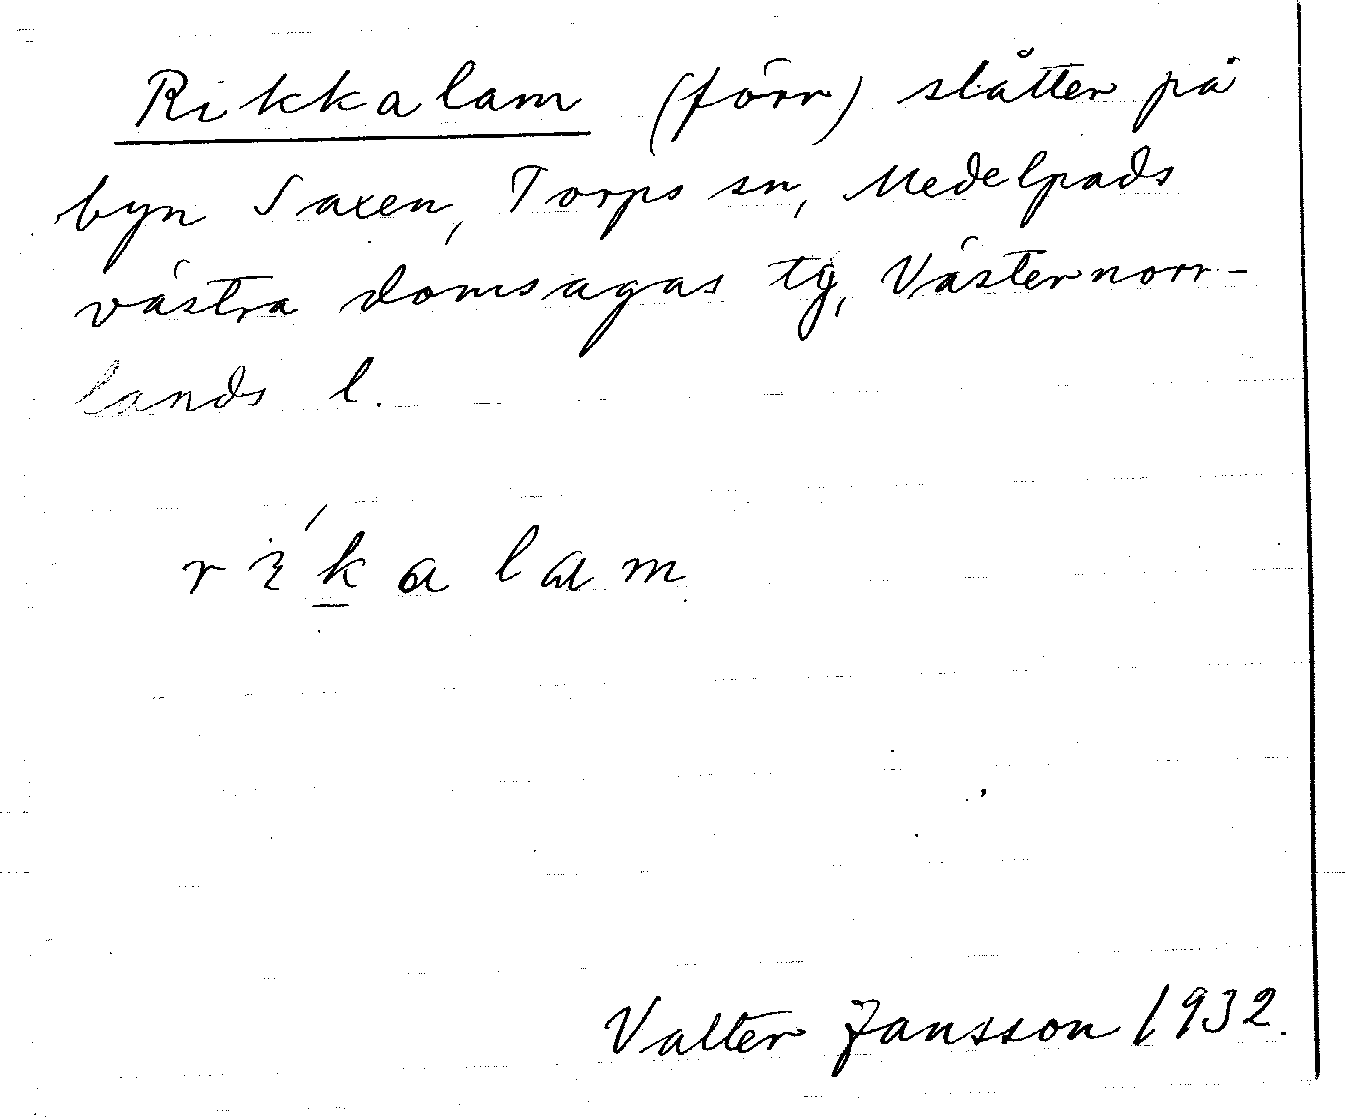 Rikkalam (förr) slåtter på
byn Saxen, Torps sn, Medelpads
västra domsagas tg, Västernorr-
lands l.
rík̲alam
Valter Jansson 1932.